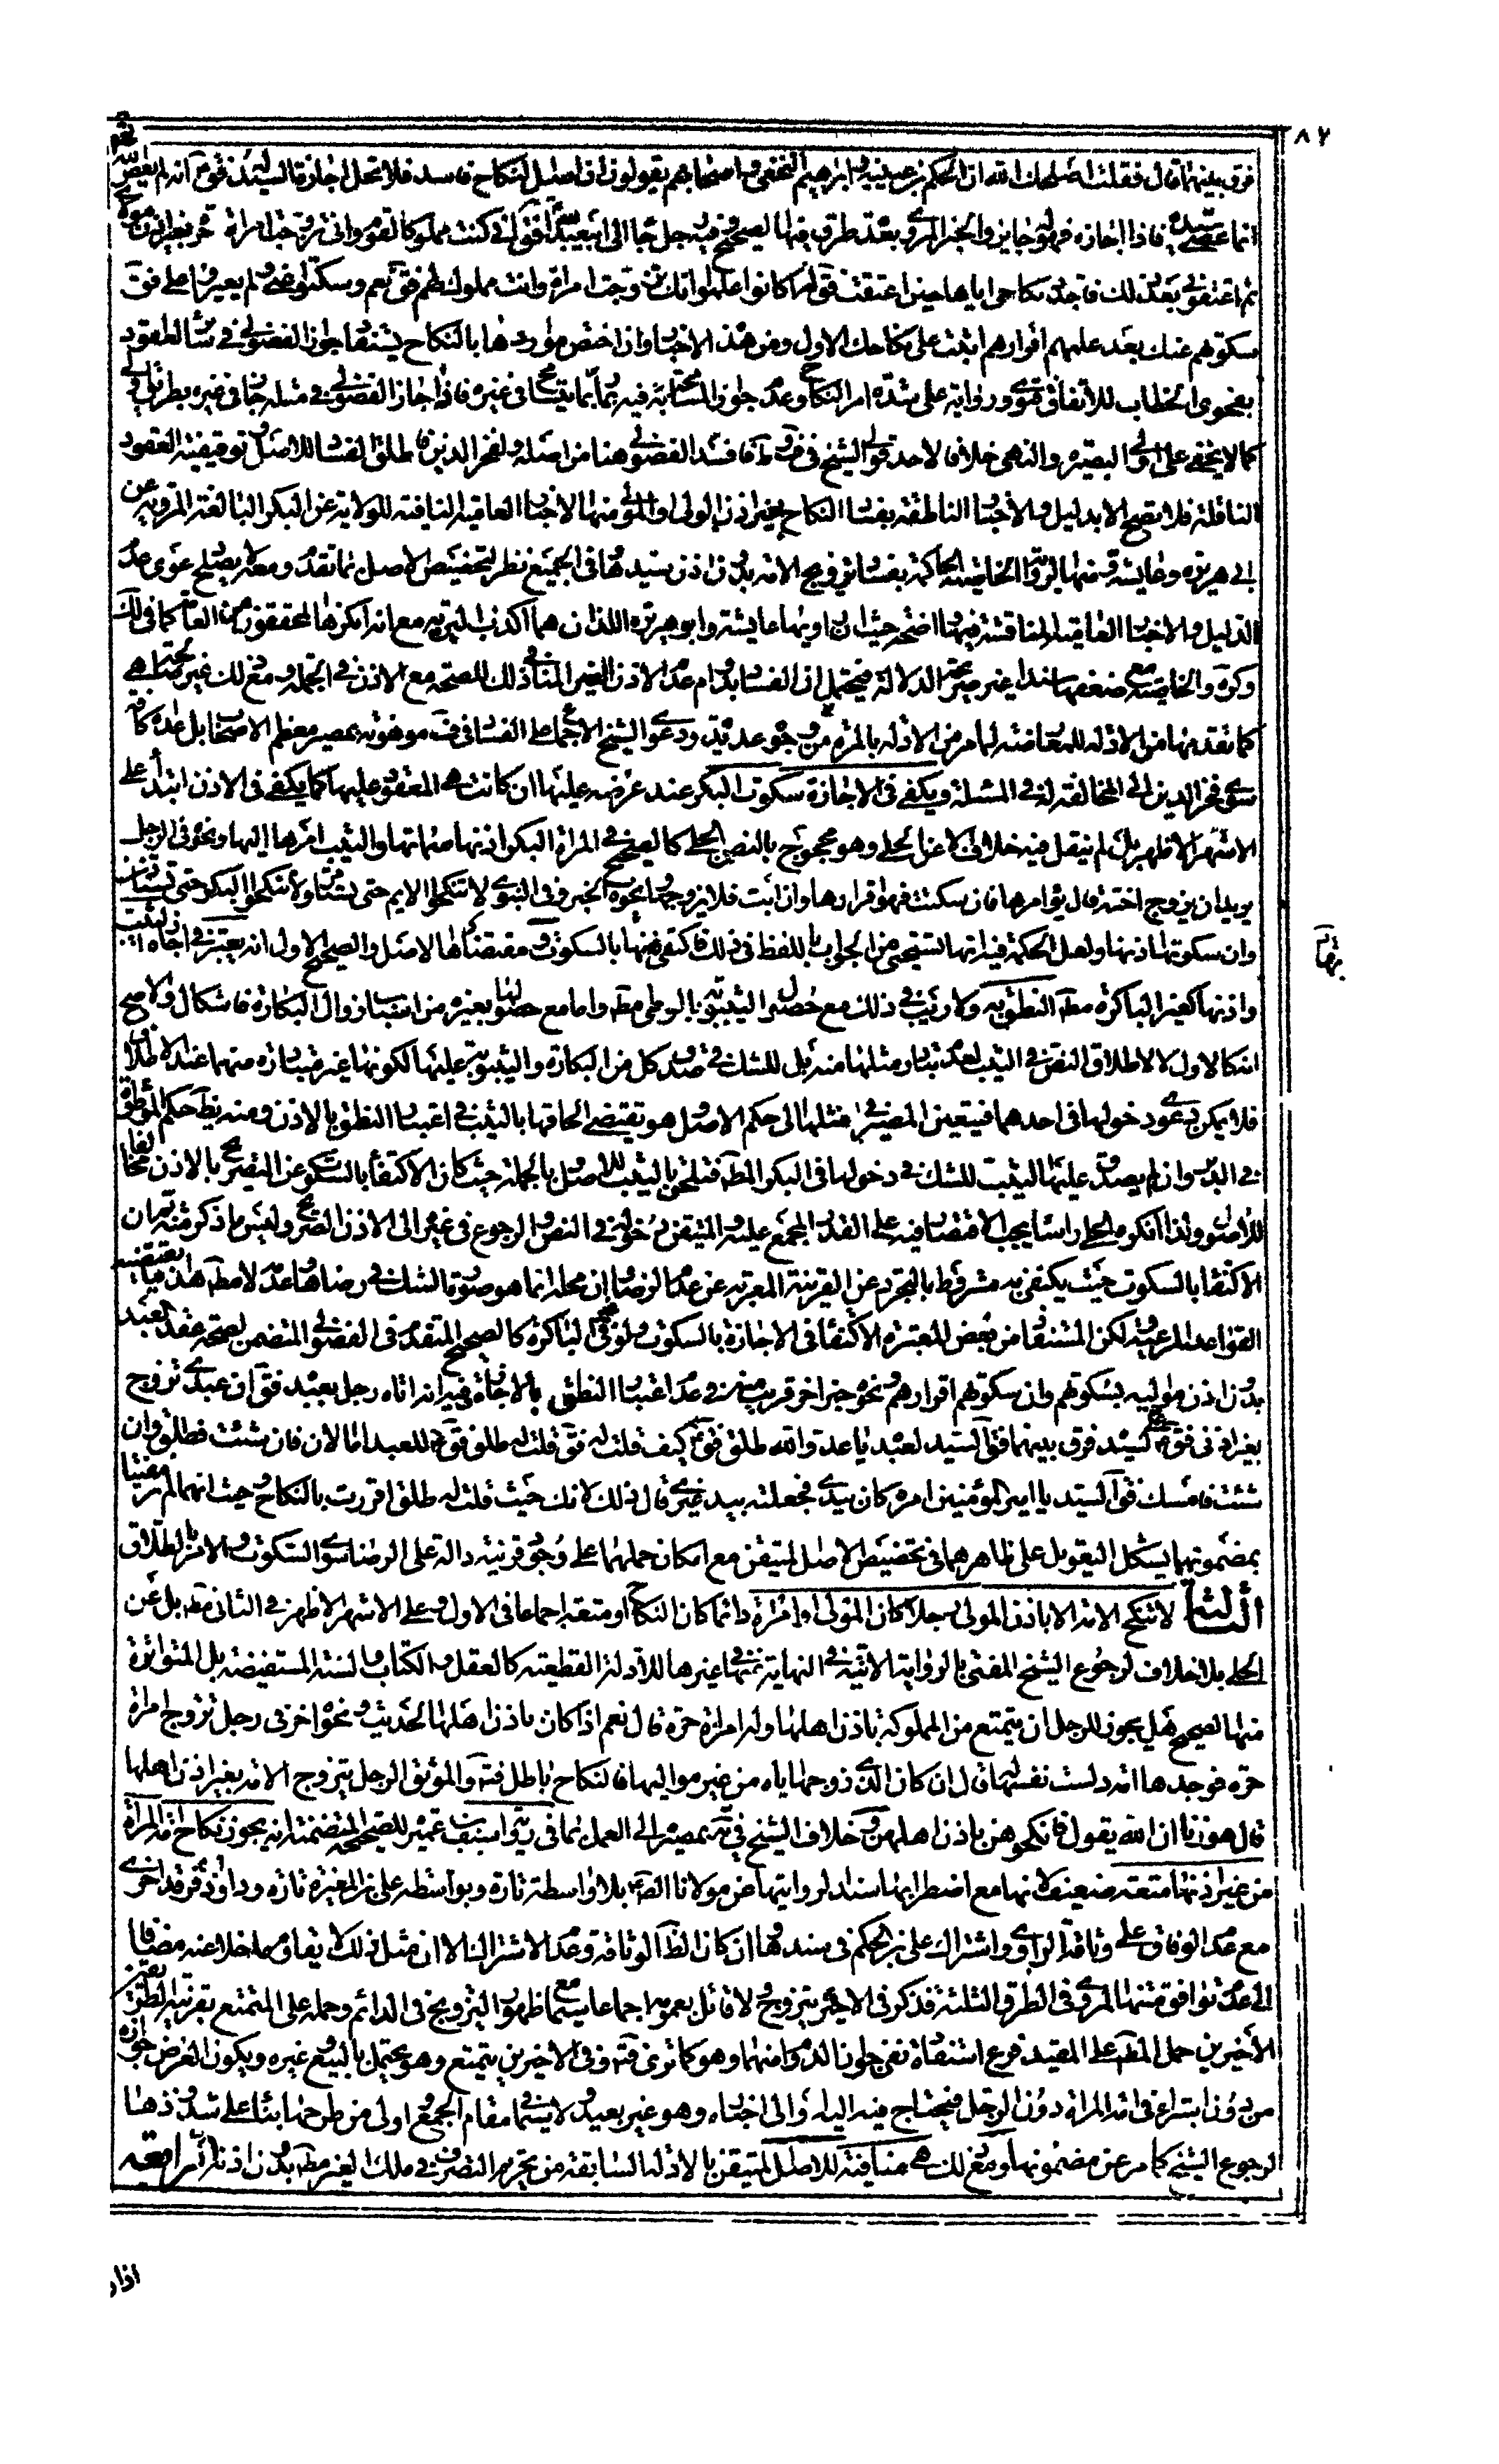 ٨٧
فرق بينهما قال فقلت اصلحك الله ان الحكم بن عيينة و ابراهيم النخعي و اصحابهم يقولون ان اصل النكاح فاسد فلا تحل اجازة السيد له فق ع انه لم يعص الله
انما عصى سيده فاذا اجازه فهو له جايز و الخبر المروي بعدة طرق فيها الصحيح فيه رجل جاء الى ابيعبدالله ع فق اني كنت مملوكا لقوم و اني تزوجت امراة حرة بغير اذن موالي
ثم اعتقوني بعد ذلك فاجدد نكاحي اياها حين اعتقت فق له اكانوا علموا انك تزوجت امراة و انت مملوك لهم فق نعم و سكتوا عني و لم يعيروا علي فق
سكوتهم عنك بعد علمهم اقرار هم اثبت على نكاحك الاول و من هذه الاخبار و ان اختص مواردها بالنكاح يستفاد جواز الفضولي في ساير العقود
بفحوى الخطاب للاتفاق فتوى و رواية على شدة امر النكاح و عدم جواز المسامحة فيه بما يتسامح في غيره فاذا جاز الفضولي في مثله جاز في غيره بطريق اولى
كما لا يخفى على اولي البصيرة و النهى خلافا لاحد قولي الشيخ في ف و ط فافسد الفضولي هنا من اصله و لفخر الدين فاطلق الفساد للاصل و توقيفية العقود
الناقلة فلا تصح الا بدليل و الاخبار الناطقة بفساد النكاح بغير اذن الولي او المولى منها الاخبار العامية المنافية للولاية عن البكر البالغة المروية عن
ابي هريرة و عايشة و منها الروايات الخاصية الحاكمة بفساد تزويج الامة بدون اذن سيدها و في الجميع نظر لتخصيص الاصل بما تقدم و معه لا يصلح دعوى عدم
الدليل و الاخبار العامية المناقشة فيها واضحة حيث ان راويها عايشة و ابو هريرة اللذان هما اكذب البرية مع انه انكرها المحققون من العامة كما في لك
وكرة و الخاصية مع ضعفها سندا غير صريحة الدلالة فيحتمل ان الفساد بدوام عدم الاذن الغير المنافي ذلك للصحة مع الاذن في الجملة و مع ذلك غير مكافئة هي
كما تقدمها من الادلة للمعارضة لما مر من الادلة بالمرة من وجوه عديدة و دعوى الشيخ الاجماع على الفساد في ف موهونة بمصير معظم الاصحاب بل عامة كافة
سوى فخر الدين الى المخالفة له في المسئلة و يكفي في الاجازة سكوت البكر عند عرضه عليها ان كانت هي المعقود عليها كما يكفي في الاذن ابتداء على
الاشهر الاظهر بل لم ينقل فيه خلاف الا عن الحلي و هو محجوج بالنص الجلي كالصحيح في المراة البكر اذنها صماتها و الثيب امرها اليها و نحوه في الرجل
يريد ان يزوج اخته قال يؤامرها فان سكتت فهو اقرارها و ان ابت فلا يزوجها و نحوه الخبر و في النبوي لا تنكحوا الايم حتى تستامر و لا تنكحوا البكر حتى تستاذن
و ان سكوتها اذنها و لعل الحكمة فيه انها تستحيي من الجواب باللفظ في ذلك فاكتفي منها بالسكوت و مقتضاها كالاصل و الصحيح الاول انه يعتبر في اجازة الثيب
و اذنها كغير الباكرة مط النطق به و لا ريب في ذلك مع حصول الثيبوبة بالوطي مط و اما مع حصولها بغيره من اسباب زوال البكارة فاشكال و لا يصح
انها كالاول لا لاطلاق النص في الثيب لعدم تبادر مثلها منه بل للشك في صدق كل من البكارة و الثيبوبة عليها لكونها غير متبادرة منهما عند الاطلاق
فلا يمكن دعوى دخولها في احدهما فيتعين المصير في مثلها الى حكم الاصل و هو يقتضي الحاقها بالثيب في اعتبار النطق بالاذن و منه يظهر حكم الموطوئة
في الدبر و ان لم يصدق عليها الثيب للشك في دخولها في البكر المط فتلحق بالثيب للاصل و بالجملة حيث كان الاكتفاء بالسكوت عن التصريح بالاذن مخالفا
للاصل و لذا انكره الحلي راسا يجب الاقتصار فيه على القدر المجمع عليه و المتيقن دخوله في النص و الرجوع في غيره الى الاذن الصريح و ليس ما ذكر منه ثم ان
الاكتفاء بالسكوت حيث يكتفى به مشروط بالتجرد عن القرينة المعربة عن عدم الرضا و ان محله انما هو صورة الشك في رضاها و عدمه لا مط هذا ما يقتضيه
القواعد المرعية و لكن المستفاد من بعض المعتبرة الاكتفاء في الاجازة بالسكوت و لو في غير الباكرة كالصحيح المتقدم في الفضولي المتضمن لصحة عقد العبد
بدون اذن مواليه بسكوتهم و ان سكوتهم اقرار هم و نحوه خبر اخر قريب منه في عدم اعتبار النطق بالاجازة فيه انه اتاه رجل بعبده فق ان عبدي تزوج
بغير اذني فق ع لسيده فرق بينهما فق السيد لعبده يا عدو الله طلق فق ع كيف قلت له فق قلت له طلق فق ع للعبد اما الان فان شئت فطلق و ان
شئت فامسك فق السيد يا امير المؤمنين امر كان بيدي فجعلته بيد غيري قال ذلك لانك حيث قلت له طلق اقررت بالنكاح و حيث انهما لم ار مفتيا
بمضمونهما يشكل التعويل على ظاهرهما في تخصيص الاصل المتيقن مع امكان حملهما على وجود قرينة دالة على الرضا سوى السكوت و الامر بالطلاق
الثالثة لا تنكح الامة الا باذن المولى رجلا كان المولى او امراة دائما كان النكاح او متعة اجماعا في الاول و على الاشهر الاظهر في الثاني مط بل عن
الحلي بلا خلاف لرجوع الشيخ المفتي بالرواية الاتية في النهاية عنها في غيرها للادلة القطعية كالعقل و الكتاب و السنة المستفيضة بل المتواترة
منها الصحيح هل يجوز للرجل ان يتمتع من المملوكة باذن اهلها و له امراة حرة قال نعم اذا كان باذن اهلها الحديث و نحوه اخر في رجل تزوج امراة
حرة فوجدها امة دلست نفسها قال ان كان الذي زوجها اياه من غير مواليها فالنكاح باطل و الموثق الرجل يتزوج الامة بغير اذن اهلها
قال هو زنا ان الله يقول فانكحوهن باذن اهلهن و خلاف الشيخ في يه بمصيره الى العمل بما في رواية سيف بن عميرة الصحيحة المتضمنة انه يجوز نكاح امة المراة
من غير اذنها متعة ضعيف لانها مع اضطرابها سندا لروايتها عن مولانا الصادق ع بلا واسطة تارة و بواسطة علي بن المغيرة تارة و داود بن فرقد اخرى
مع عدم الوفاق على وثاقة الراوي و اشتراك علي بن الحكم في سندها و ان كان الظ الوثاقة و عدم الاشتراك الا ان مثل ذلك لا يقاوم ما خلا عنه مضافا
الى عدم توافق متنها المروي في الطرق الثلثة فذكر في الاخير يتزوج و لا قائل بعمومه اجماعا سيما مع ظهور التزويج في الدائم و حمله على المتمتع بقرينة الطريقين
الاخيرين حمل المط على المقيد فرع استفادة نفي جواز الدوام منهما و هو كما ترى و في الاخيرين يتمتع و هو يحتمل بالبيع و غيره و يكون الغرض جوازه
من دون استبراء في امة المراة دون الرجل فيحتاج فيه اليه و الى اخباره و هو غير بعيد و لا سيما مقام الجمع اولى من طرحها بناء على شذوذها
لرجوع الشيخ كما مر عن مضمونها و مع ذلك هي منافية للاصل المتيقن بالادلة السابقة من تحريم التصرف في ملك الغير مط بدون اذنه الرابعة
اذا